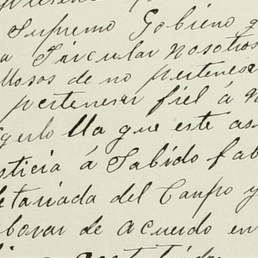 Supremo Gobierno
a Circular Nosotros
llosos de no pertenecer
pertenecer fiel á
lla que este as
sticia á Sabido fa
etariada del Campo y
borar de acuerdo en